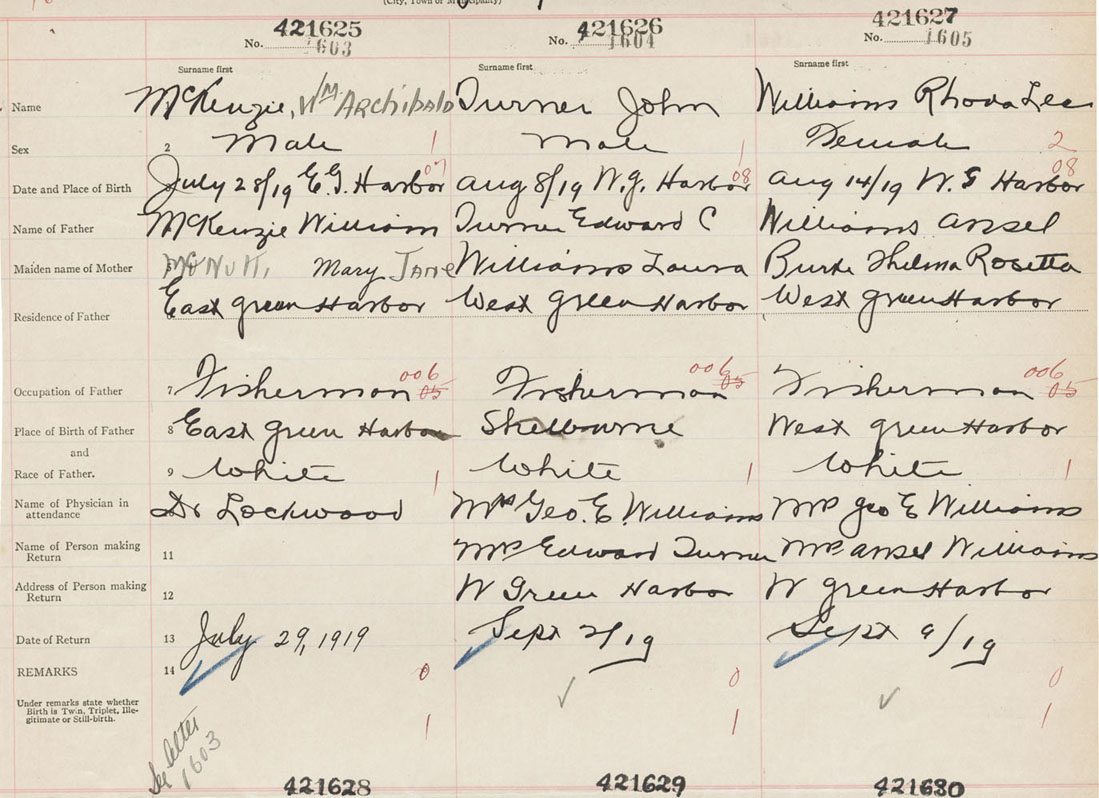 (City, Town or Municipality)
421625 421626 421627
No. 1603 No. 1604 No. 1605
Surname first Surname first Surname first
Name McKenzie, Wm Archibald Turner John Williams Rhoda Lee
Sex 2 Male 1 Male 1 Female 2
Date and Place of Birth July 28/19 E.G. Harbor 07 Aug 8/19 W.G. Harbor 08 Aug 14/19 W.G Harbor 08
Name of Father McKenzie William Turner Edward C Williams Ansel
Maiden name of Mother McNutt, Mary Jane Williams Laura Burke Thelma Rosetta
Residence of Father East Green Harbor West Green Harbor West Green Harbor
Occupation of Father 7 Fisherman 006 05 Fisherman 006 05 Fisherman 006 05
Place of Birth of Father 8 East Green Harbor Shelburne West Green Harbor
and
Race of Father. 9 White 1 White 1 White 1
Name of Physician in attendance Dr Lockwood Mrs Geo. E. Williams Mrs Geo E Williams
Name of Person making Return 11 Mrs Edward Turner Mrs Ansel Williams
Address of Person making Return 12 W Green Harbor W Green Harbor
Date of Return 13 July 29, 1919 Sept 2/19 Sept 9/19
REMARKS 14 0 0 0
Under remarks state whether
Birth is Twin, Triplet, Ille-
gitimate or Still-birth. 1 1 1
See letter
1603
421628 421629 421630